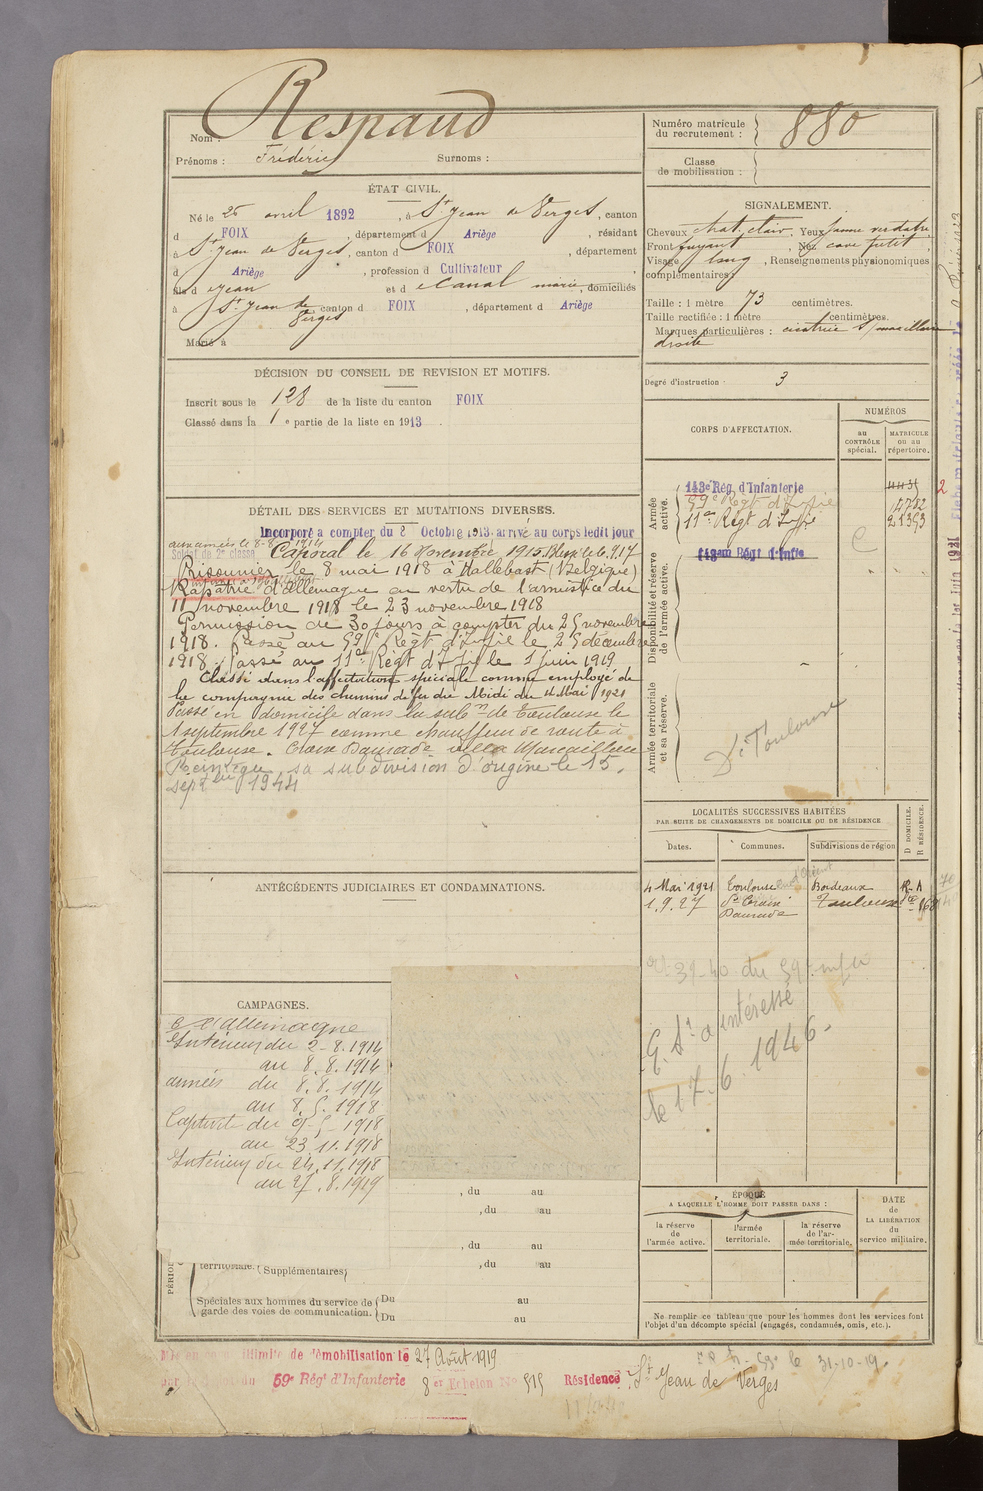 Nom : Respaud
Prénoms : Frédéric Surnoms :
Numéro matricule du recrutement : 880
Classe de mobilisation :
ÉTAT CIVIL.
Né le 25 avril 1892, à St Jean de Verges, canton
d FOIX, département d Ariège, résidant
à St Jean de Verges, canton d FOIX, département
d Ariège, profession d Cultivateur
fils d Jean et d Canal marie, domiciliés
à St Jean de Verges canton d FOIX, département d Ariège
Marié à
SIGNALEMENT.
Cheveux chat. clair, Yeux jaune verdatre
Front fuyant, Nez cave petit
Visage long, Renseignements physionomiques
complémentaires :
Taille : 1 mètre 73 centimètres.
Taille rectifiée : 1 mètre centimètres.
Marques particulières : cicatrice s/ maxillaire
droite
Degré d'instruction : 3
DÉCISION DU CONSEIL DE REVISION ET MOTIFS.
Inscrit sous le 128 de la liste du canton FOIX
Classé dans la 1e partie de la liste en 1913.
DÉTAIL DES SERVICES ET MUTATIONS DIVERSES.
Incorporé a compter du 8 Octobre 1913. arrivé au corps ledit jour
aux armées le 8-8-1914
Soldat de 2e classe Caporal le 16 Novembre 1915.
Prisonnier le 8 mai 1918 à Hallebast (Belgique)
Rapatrié d'allemagne en vertu de l'armistice du
11 novembre 1918 le 23 novembre 1918
Permission de 30 jours à compter du 25 novembre
1918. Passé au 59e Régt d'Inf ie le 25 décembre
1918. Passé au 11e Régt d'Inf ie le 1 juin 1919
Classé dans l'affectation spéciale comme employé de
la compagnie des chemins de fer du Midi du 4 Mai 1921
Passé en domicile dans la subon de Toulouse le
1 septembre 1927 comme chauffeur de route à
Toulouse. Croix Daurade villa Marcaillou
Réintègre sa subdivision d'origine le 15
septbre 1944
CORPS D'AFFECTATION.
NUMÉROS
au CONTRÔLE spécial.
MATRICULE ou au répertoire.
Armée active.
143e Rég. d'Infanterie
59e Régt d'Inf ie 14722
11e Régt d'Inf ie
Disponibilité et réserve de l'armée active.
Armée territoriale et sa réserve.
Dt Toulouse
LOCALITÉS SUCCESSIVES HABITÉES
PAR SUITE DE CHANGEMENTS DE DOMICILE OU DE RÉSIDENCE
Dates. Communes. Subdivisions de région D DOMICILE. R RÉSIDENCE.
4 Mai 1921 Toulouse Bordeaux R
1.9.27 Croix Daurade Toulouse
59e
G. St a interessé
le 17-6 1946-
ANTÉCÉDENTS JUDICIAIRES ET CONDAMNATIONS.
CAMPAGNES.
C. c/ allemagne
Intérieur du 2-8.1914
au 8.8.1914
armées du 8.8.1914
au 8.5.1918
Captivité du 9-5-1918
au 23.11.1918
Intérieur du 24.11.1918
au 27.8.1919
, du au
, du au
, du au
, du au
territoriale. (Supplémentaires)
Spéciales aux hommes du service de garde des voies de communication. Du au
Du au
ÉPOQUE
A LAQUELLE L'HOMME DOIT PASSER DANS :
la réserve de l'armée active.
l'armée territoriale.
la réserve de l'armée territoriale.
DATE de LA LIBÉRATION du service militaire.
Ne remplir ce tableau que pour les hommes dont les services font
l'objet d'un décompte spécial (engagés, condamnés, omis, etc.).
Mis en congé illimité de démobilisation le 27 Août 1919
59e Régt d'Infanterie 8er Echelon No 515 Résidence St Jean de Verges
le 31-10-19